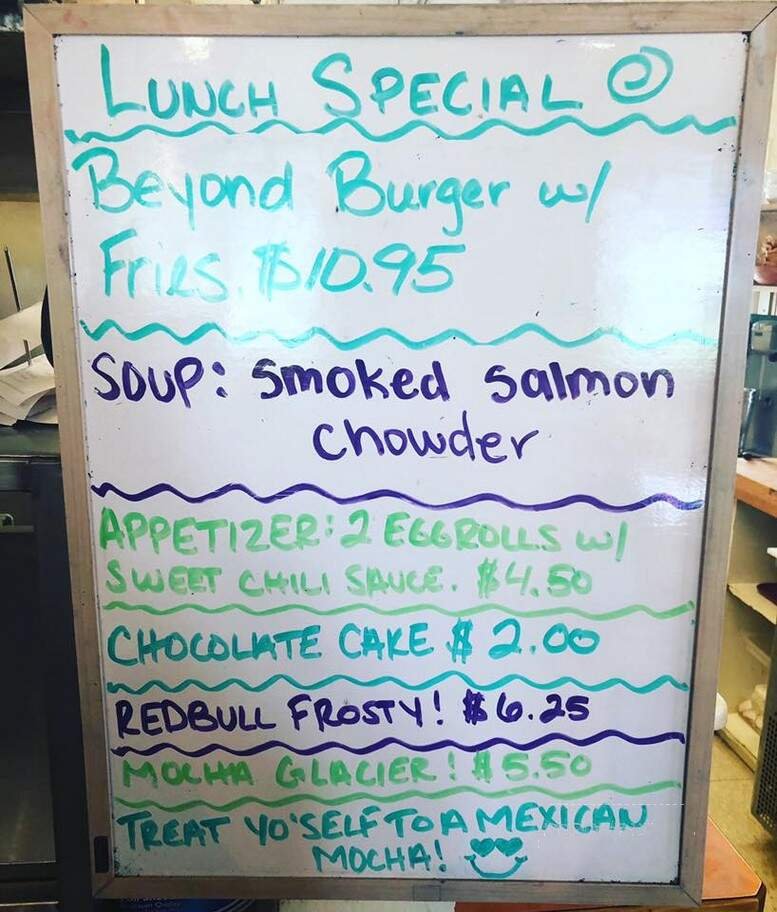 LUNCH SPECIAL
Beyond Burger w/
Fries. $10.95
SOUP: smoked salmon
chowder
APPETIZER: 2 EGGROLLS w/
SWEET CHILI SAUCE. $4.50
CHOCOLATE CAKE $2.00
REDBULL FROSTY! $6.25
MOCHA GLACIER! $5.50
TREAT YO'SELF TO A MEXICAN
MOCHA!